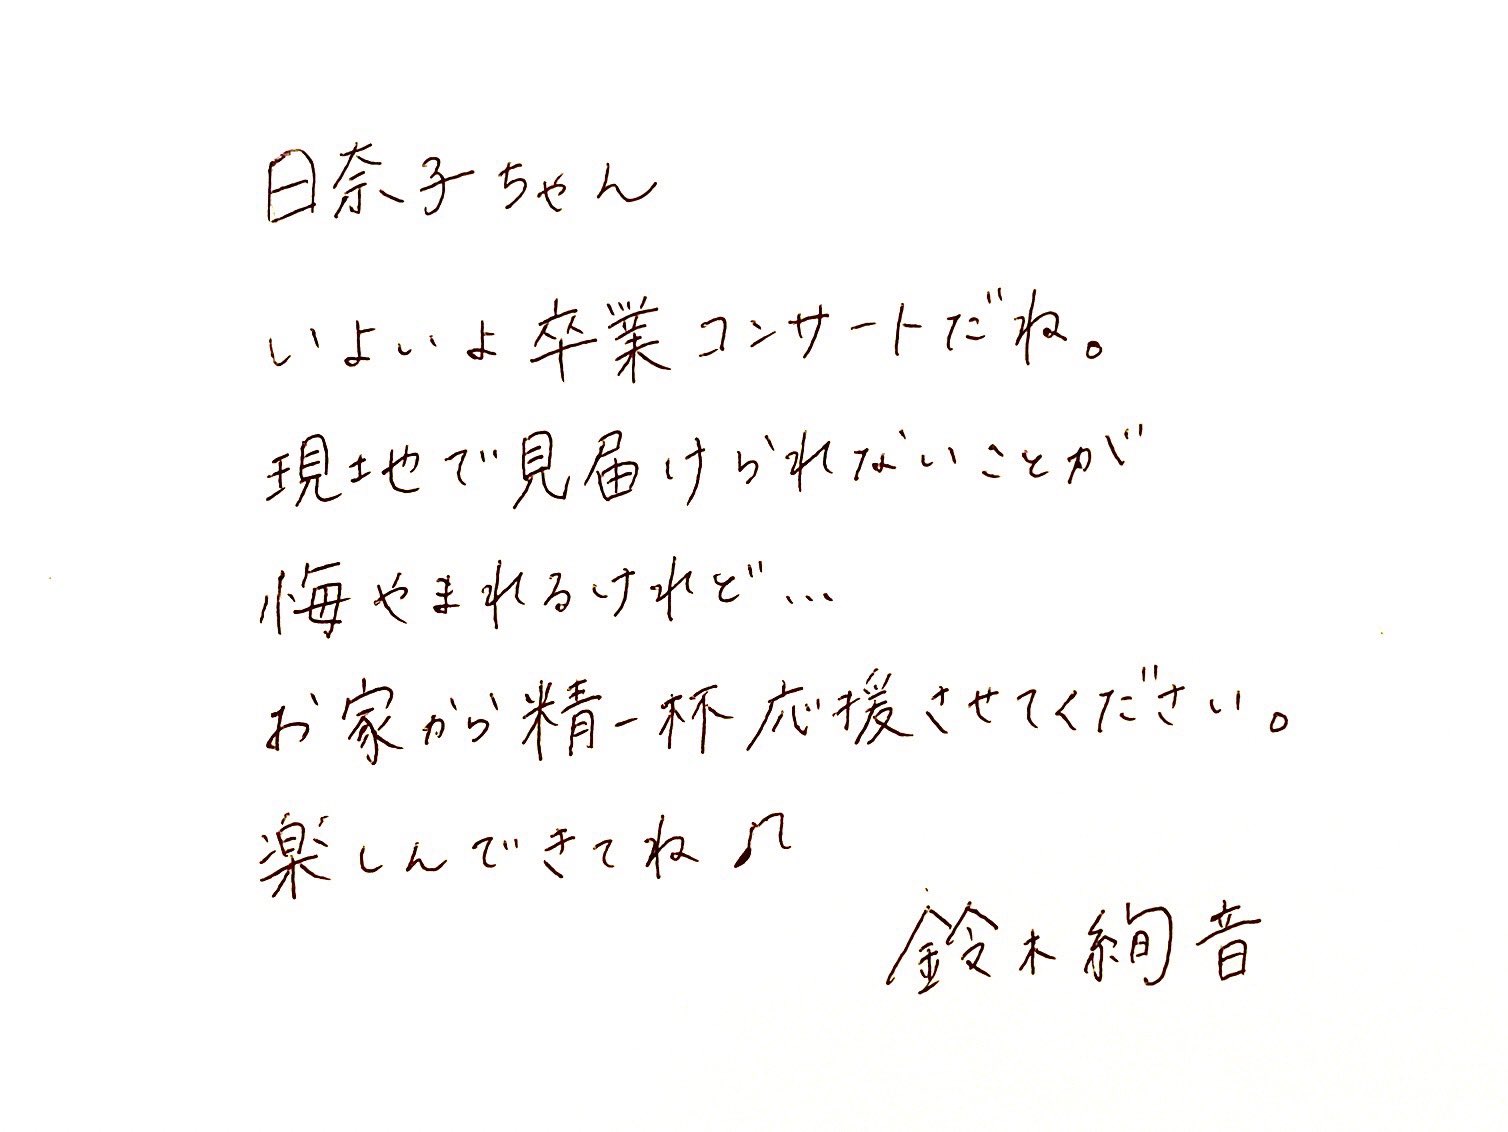 日奈子ちゃん
いよいよ卒業コンサートだね。
現地で見届けられないことが
悔やまれるけれど…
お家から精一杯応援させてください。
楽しんできてね♫
鈴木絢音